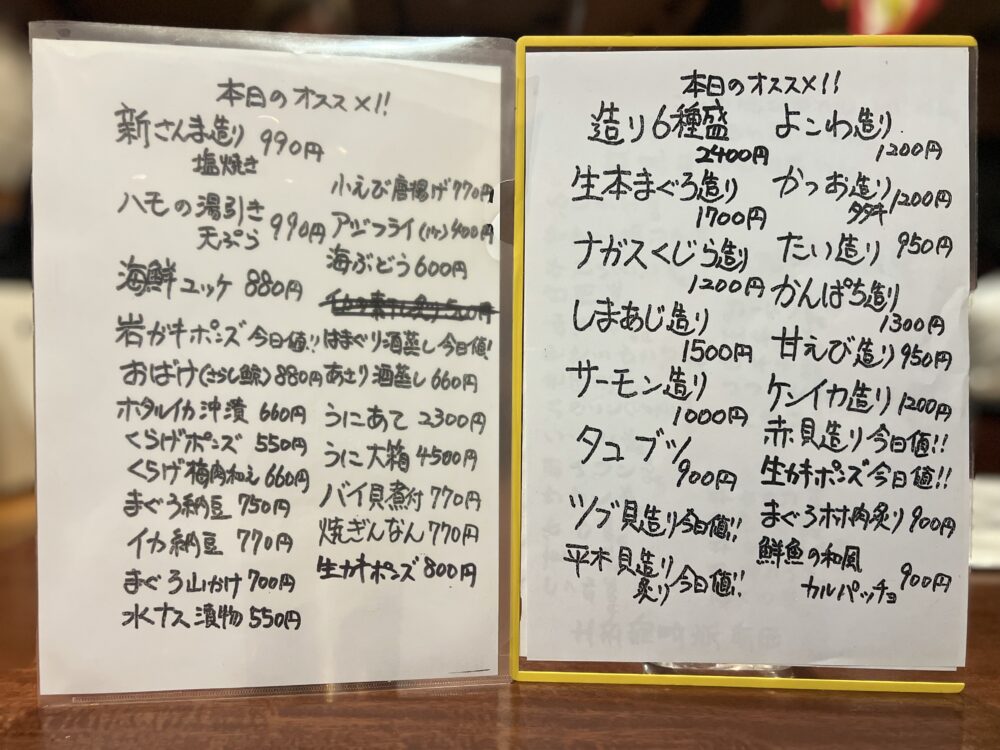 本日のオススメ!!
新さんま造り 990円
塩焼き
ハモの湯引き 990円
天ぷら
海鮮ユッケ 880円
岩ガキポンズ 今日値!!
おばけ(さらし鯨) 880円
ホタルイカ沖漬 660円
くらげポンズ 550円
くらげ梅肉和え 660円
まぐろ納豆 750円
イカ納豆 770円
まぐろ山かけ 700円
水ナス漬物 550円
小えび唐揚げ 770円
アジフライ(1ケ) 400円
海ぶどう 600円
はまぐり酒蒸し 今日値!
あさり酒蒸し 660円
うにあて 2300円
うに大箱 4500円
バイ貝煮付 770円
焼ぎんなん 770円
生カキポンズ 800円
本日のオススメ!!
造り6種盛
2400円
生本まぐろ造り
1700円
ナガスくじら造り
1200円
しまあじ造り
1500円
サーモン造り
1000円
タコブツ
900円
ツブ貝造り 今日値!!
平木貝造り 今日値!!
炙り
よこわ造り
1200円
かつお造り 1200円
タタキ
たい造り 950円
かんぱち造り
1300円
甘えび造り 950円
ケンイカ造り 1200円
赤貝造り 今日値!!
生カキポンズ 今日値!!
まぐろホホ肉炙り 900円
鮮魚の和風
カルパッチョ 900円